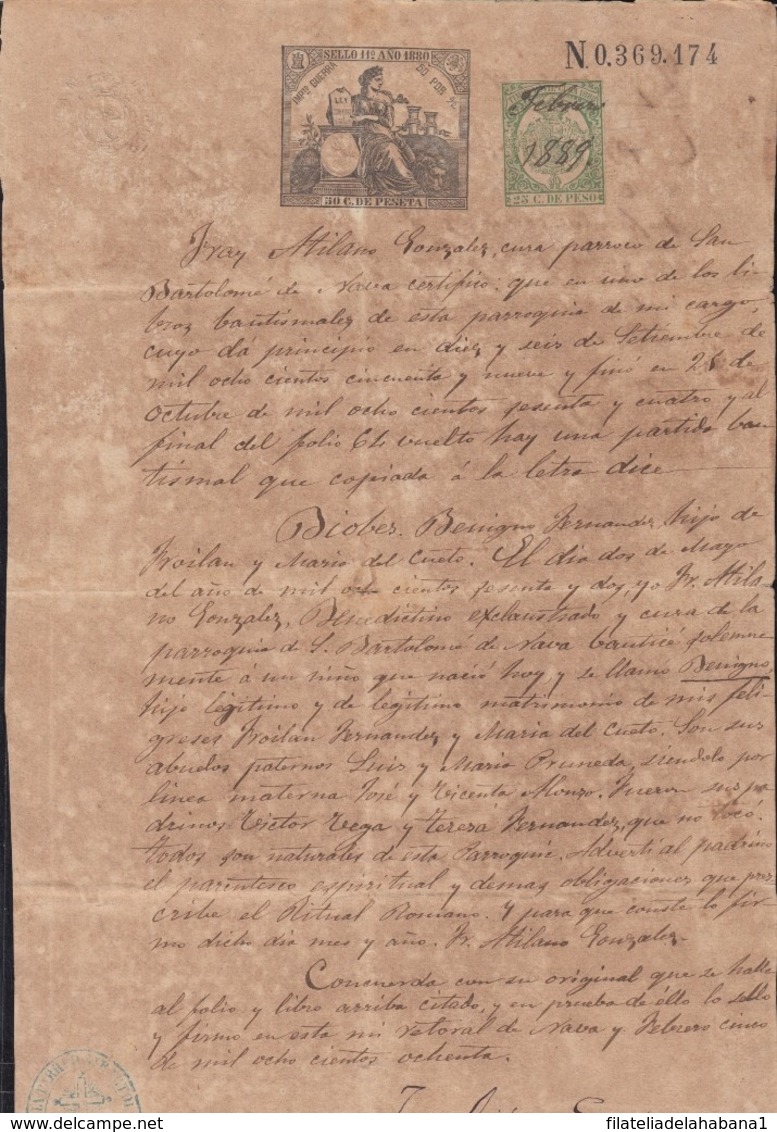 SELLO 11º AÑO 1880
IMPTO GUERRA
50 POR %
LEY
50 C. DE PESETA
N0.369.174
Febrero
1889.
25 C. DE PESO
Fray Atilano Gonzalez, cura parroco de San
Bartolomé de Nava certifico: que en uno de los li-
bros bautismales de esta parroquia de mi cargo,
cuyo dá principio en diez y seis de Setiembre de
mil ocho cientos cincuenta y nueve y finó en 28 de
octubre de mil ocho cientos sesenta y cuatro, y al
final del folio vuelto hay una partida bau
tismal que copiada á la letra dice
Biobes. Benigno Fernandez, hijo de
Froilan y Maria del Cueto. El dia dos de Mayo
del año de mil ocho cientos sesenta y dos, yo Fr. Atila-
no Gonzalez, Benedictino exclaustrado y cura de la
parroquia de S. Bartolomé de Nava bauticé solemne
mente á un niño que nació hoy y se llamó Benigno,
hijo legitimo y de legitimo matrimonio de mis feli-
greses Froilan Fernandez y Maria del Cueto. Son sus
abuelos paternos Luis y Maria Pruneda, siendolo por
linea materna José y Vicenta Alonzo. Fueron sus pa
drinos Victor Vega y Teresa Fernandez, que no tocó.
Todos son naturales de esta Parroquia. Advertí al padrino
el parentesco espiritual y demas obligaciones que pres
cribe el Ritual Romano. Y para que conste lo fir-
mo dicto dia mes y año. Fr. Atilano Gonzalez-
Concuerda con su original que se halla
al folio y libro arriba citado, y en prueba de éllo lo sello
y firmo en esta mi retoral de Nava y Febrero cinco
de mil ocho cientos ochenta.
filateliadelahabana1